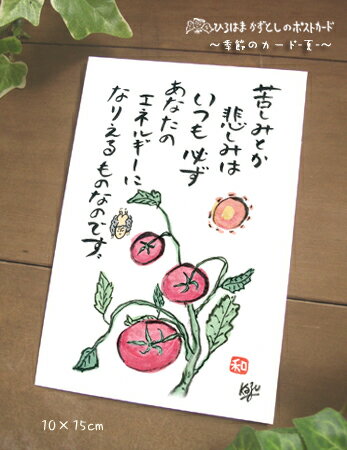 ひろはまかずとしのポストカード
～季節のカード-夏-～
苦しみとか
悲しみは
いつも必ず
あなたの
エネルギーに
なりえるものなのです。
和
Kazu
10×15cm